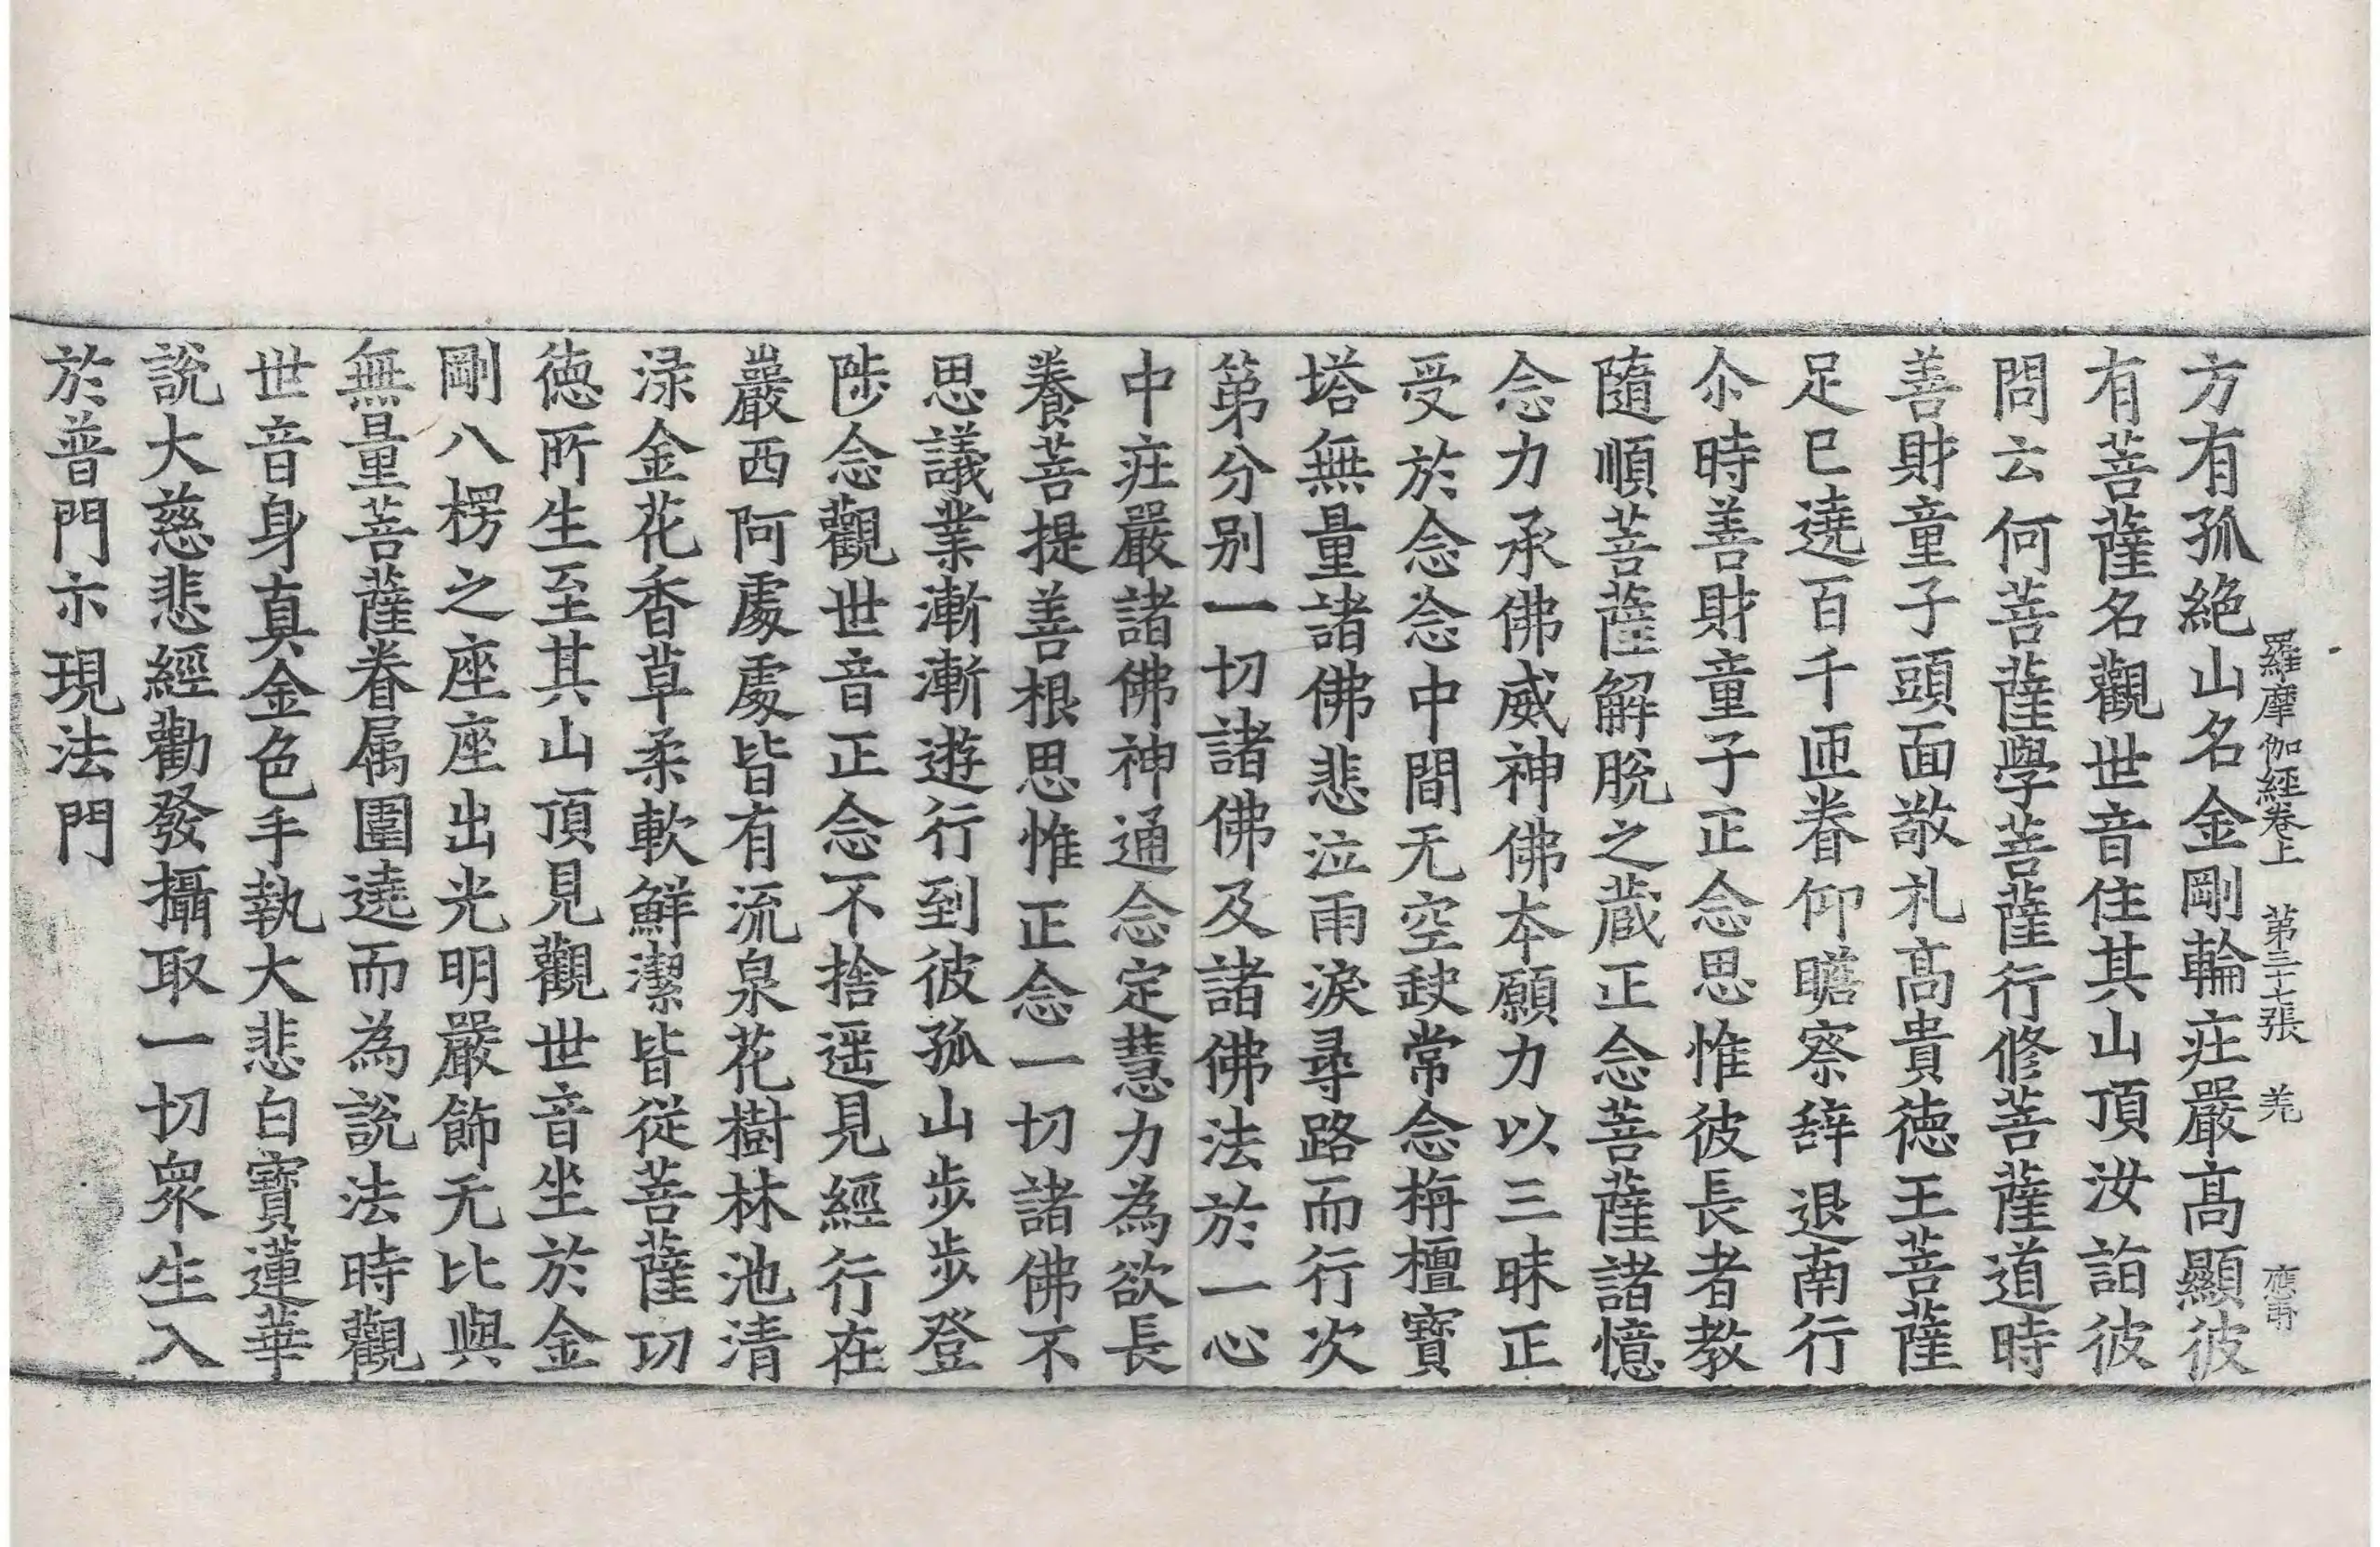 羅摩伽經卷上 第三十七張 羌
方有孤絶山名金剛輪莊嚴高顯彼
有菩薩名觀世音住其山頂汝詣彼
問云何菩薩學菩薩行修菩薩道時
善財童子頭面敬礼高貴德王菩薩
足已遶百千匝眷仰瞻察辝退南行
尒時善財童子正念思惟彼長者教
隨順菩薩解脫之蔵正念菩薩諸憶
念力承佛威神佛本願力以三昧正
受於念念中間无空缺常念栴檀寶
塔無量諸佛悲泣雨淚尋路而行次
第分别一切諸佛及諸佛法於一心
中莊嚴諸佛神通念定慧力為欲長
養菩提善根思惟正念一切諸佛不
思議業漸漸遊行到彼孤山步步登
陟念觀世音正念不捨遥見經行在
巖西阿處處皆有流泉花樹林池清
渌金花香草柔軟鮮潔皆從菩薩功
德所生至其山頂見觀世音坐於金
剛八楞之座座出光明嚴飾无比與
無量菩薩眷属圍遶而為說法時觀
世音身真金色手執大悲白寶蓮華
說大慈悲經勸發攝取一切衆生入
於普門示現法門